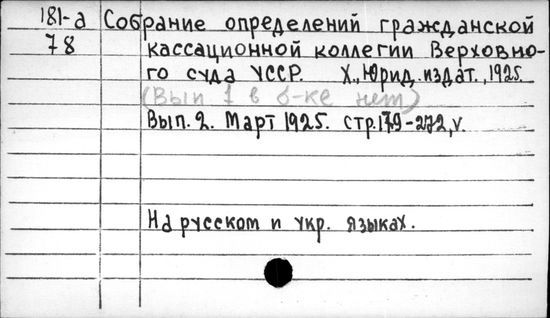 181-а Собрание определений гражданской
78 кассационной коллегии Верховно-
го суда УССР. Х., Юрид. издат., 1925.
(Вып 1 в б-ке нет)
Вып. 2. Март 1925. стр. 179-272, v.
На русском и укр. языках.